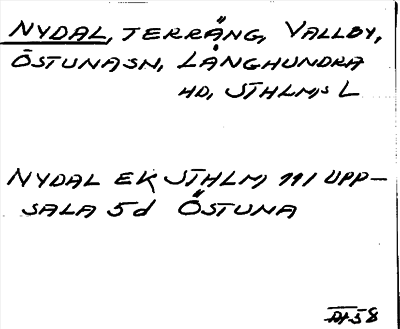 NYDAL, TERRÄNG, VALLBY,
ÖSTUNASN, LÅNGHUNDRA
HD, STHLM,S L
NYDAL EK STHLM 111 UPP-
SALA 5d ÖSTUNA
58